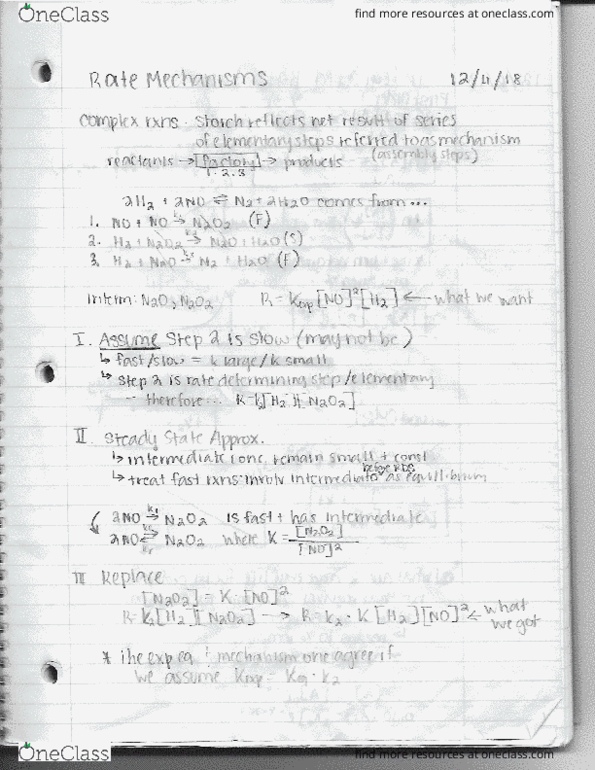 OneClass
find more resources at oneclass.com
Rate Mechanisms 12/4/18
complex rxns. Stoich reflects net result of series
of elementary steps referred to as mechanism
reactants → [factory] → products (assembly steps)
1. 2. 3
2H2 + 2NO ⇌ N2 + 2H2O comes from ...
1. NO + NO → N2O2 (F)
2. H2 + N2O2 → N2O + H2O (S)
3. H2 + N2O → N2 + H2O (F)
Interm: N2O, N2O2 R = Kexp [NO]² [H2] ← what we want
I. Assume Step 2 is slow (may not be)
↳ fast/slow = k large/k small
↳ step 2 is rate determining step/elementary
therefore... R = k[H2][N2O2]
II. Steady State Approx.
↳ intermediate conc. remain small + const
↳ treat fast rxns involv intermediate before RDS as equilibrium
2NO → N2O2 is fast + has intermediate
2NO ⇌ N2O2 where K = [N2O2]
[NO]²
III Replace
[N2O2] = K · [NO]²
R = k2[H2][N2O2] → R = k2 · K [H2][NO]² ← what
we got
* the exp eq mechanism one agree if
we assume Kexp = Keq · k2
OneClass
find more resources at oneclass.com